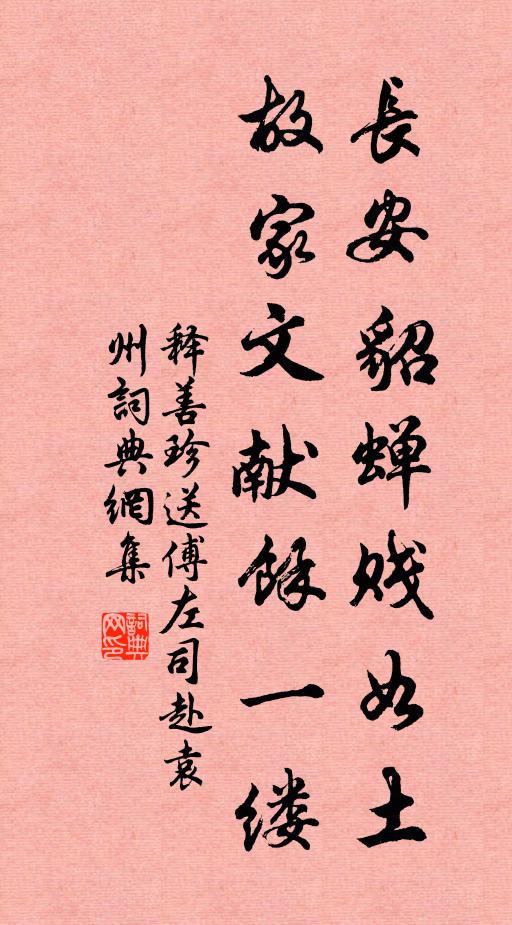 長安貂蟬贱如土
故家文献餘一缕
释善珍送傅左司赴袁
州詞典網集
詞典網印